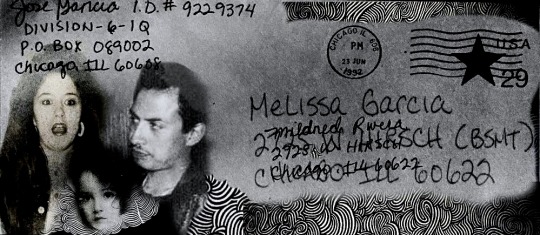 Jose Garcia I.D. # 9229374
DIVISION-6-1Q
P.O. BOX 089002
Chicago ILL 60608
CHICAGO IL 606
PM
23 JUN
1992
USA
29
Melissa Garcia
HIRSCH (BSMT)
CHICAGO ILL 60622
Mildred Rivera
2925 W HIRSCH
Chicago Ill 60622